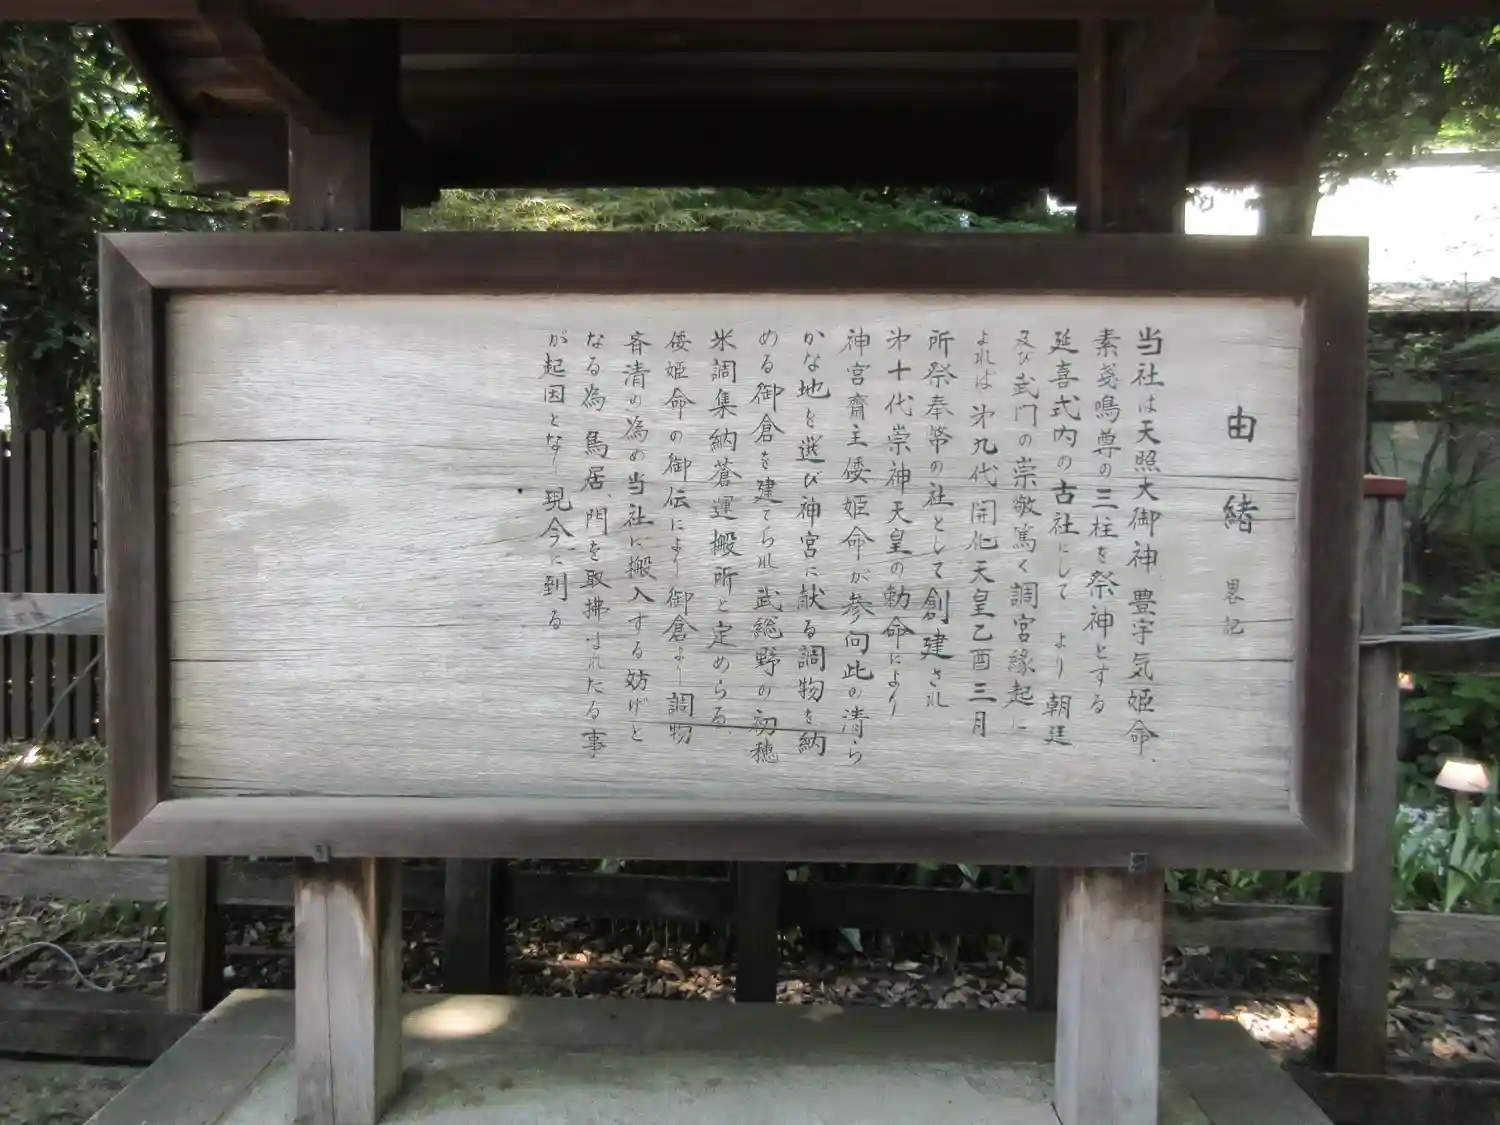 由緒 畧記
当社は天照大御神、豊宇気姫命、
素戔鳴尊の三柱を祭神とする
延喜式内の古社にして より朝廷
及び武門の崇敬篤く調宮縁起に
よれば 㐧九代開化天皇乙酉三月
所祭奉幣の社として創建され
㐧十代崇神天皇の勅命により
神宮齋主倭姫命が参向此の清ら
かな地を選び神宮に献る調物を納
める御倉を建てられ武総野の初穂
米調集納蒼運搬所と定めらる、
倭姫命の御伝により御倉より調物
斉清の為め当社に搬入する妨げと
なる為、鳥居、門を取拂はれたる事
が起因となり現今に到る